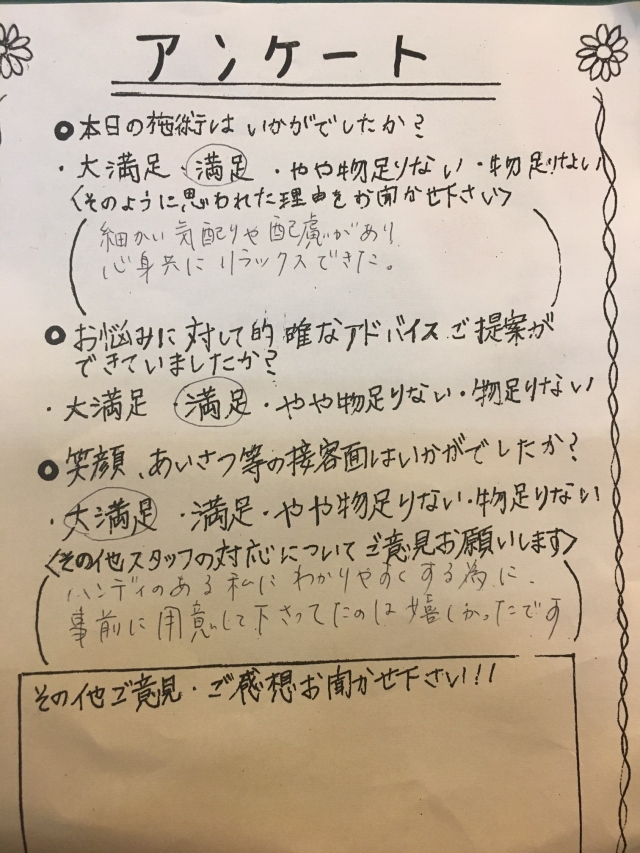 アンケート
●本日の施術はいかがでしたか?
・大満足・満足・やや物足りない・物足りない
〈そのように思われた理由をお聞かせ下さい〉
細かい気配りや配慮があり
心身共にリラックスできた。
●お悩みに対して的確なアドバイスご提案が
できていましたか?
・大満足・満足・やや物足りない・物足りない
●笑顔、あいさつ等の接客面はいかがでしたか?
・大満足・満足・やや物足りない・物足りない
〈その他スタッフの対応についてご意見お願いします〉
ハンディのある私にわかりやすくする為に、
事前に用意して下さってたのは嬉しかったです
その他ご意見・ご感想お聞かせ下さい!!